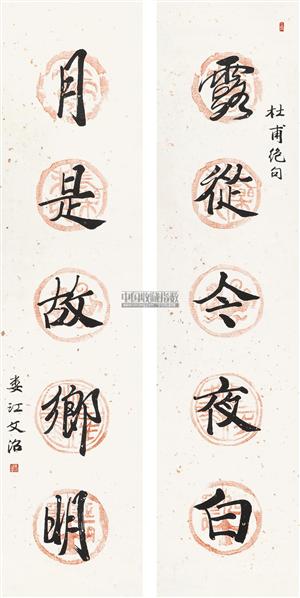 杜甫绝句
露從今夜白
月是故鄉明
娄江文治
中国收藏指数